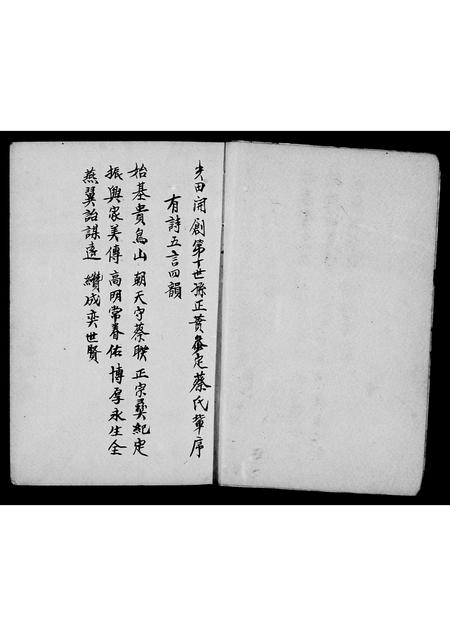 光田開創第十世孫正蕢僉定蔡氏輩序
有詩五言四韻
始基貴烏山 朝天守蔡睽 正宗彝紀定
振興家美傳 高明常春佑 博厚永生全
燕翼詒謀遠 纘成奕世賢